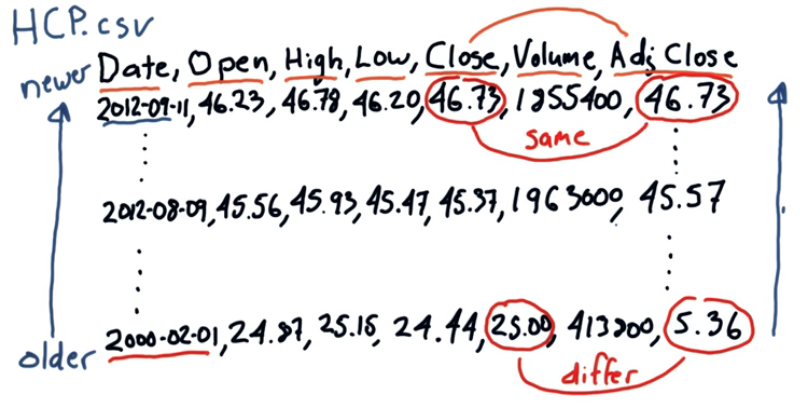 HCP.csv
newer Date, Open, High, Low, Close, Volume, Adj Close
2012-09-11, 46.23, 46.78, 46.20, 46.73, 1855400, 46.73
same
2012-08-09, 45.56, 45.93, 45.47, 45.37, 1963600, 45.57
older 2000-02-01, 24.87, 25.15, 24.44, 25.00, 413800, 5.36
differ